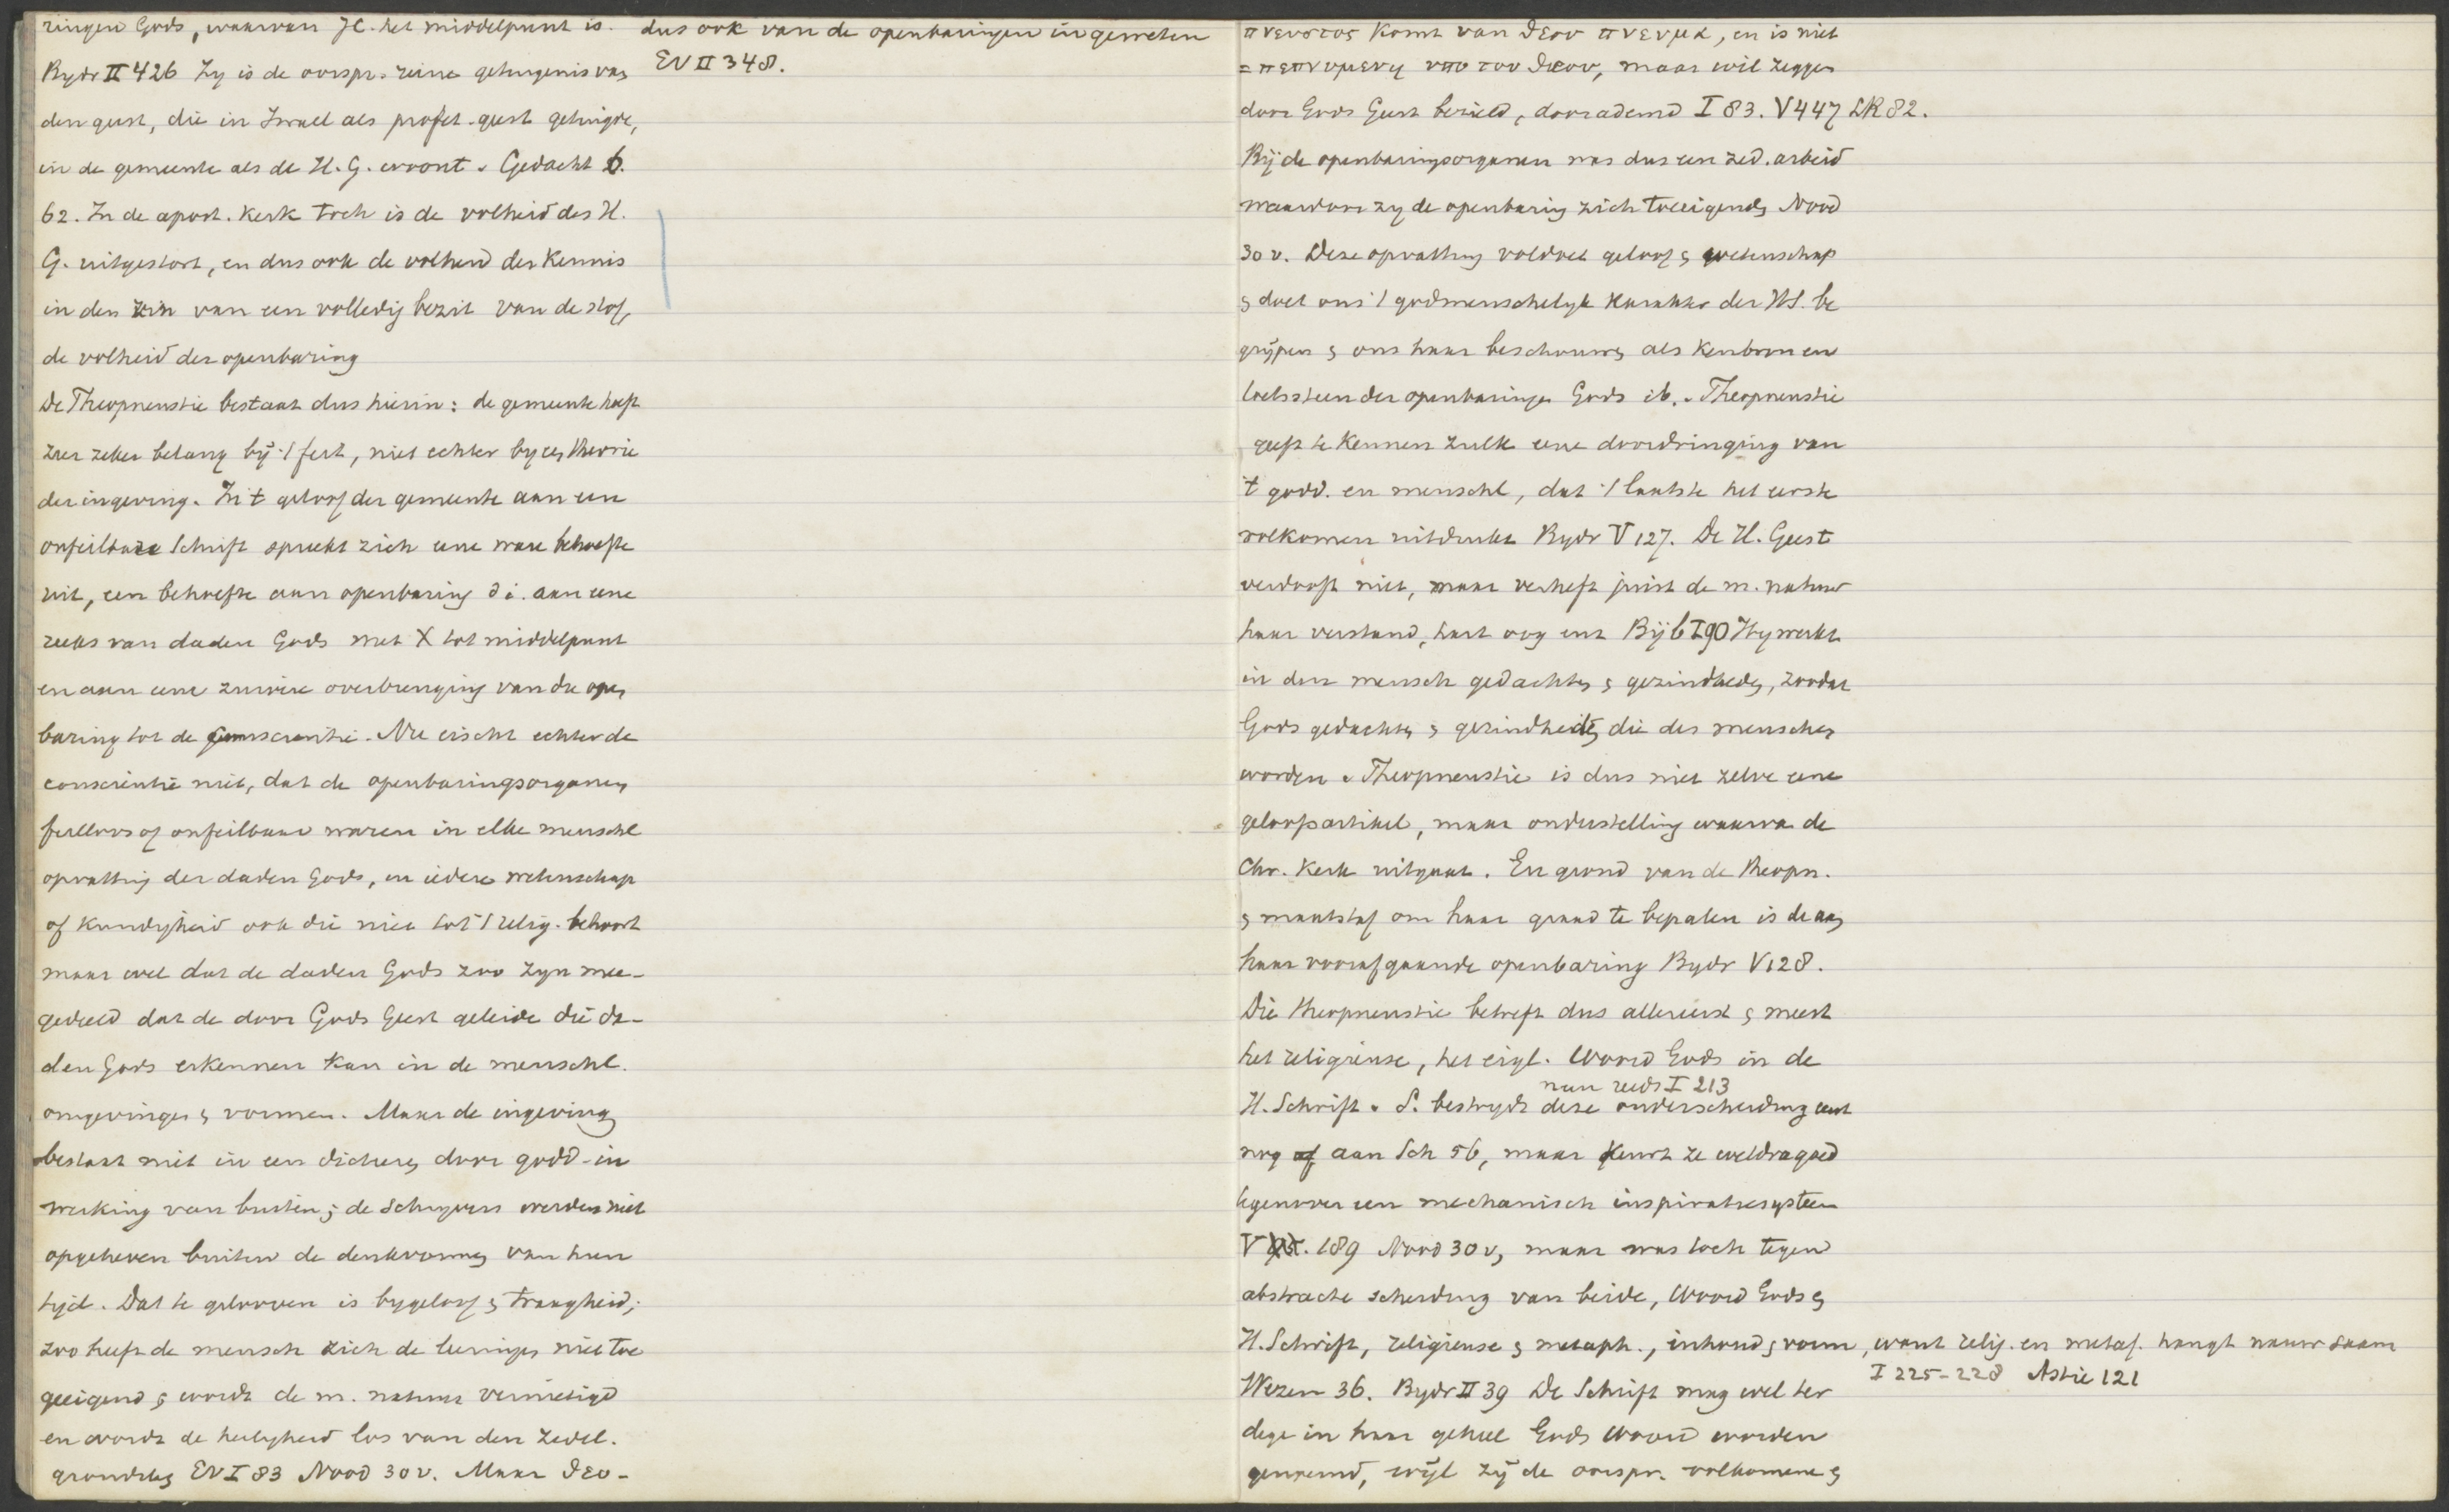 ringen Gods, waarvan JC. het middelpunt is.
Bydr II 426 Zy is de oorspr. reine getuigenis van
den geest, die in Israel als profet. geest getuigde,
in de gemeente als de H. G. woont. Gedacht b.
62. In de apost. Kerk toch is de volheid des H.
G. uitgestort, en dus ook de volheid der Kennis
in den zin van een volledig bezit van de stof,
de volheid der openbaring
De Theopneustie bestaat dus hierin: de gemeente heeft
zeer zeker belang bij 't feit, niet echter by een theorie
der ingeving. In 't geloof der gemeente aan een
onfeilbare Schrift spreekt zich eene ware behoefte
uit, een behoefte aan openbaring d. i. aan eene
reeks van daden Gods met X tot middelpunt
en aan eene zuivere overbrenging van die open
baring tot de conscientie. Nu eischt echter de
conscientie niet, dat de openbaringsorganen
feilloos of onfeilbaar waren in elke menschl
opvatting der daden Gods, in iedere wetenschap
of kundigheid ook die niet tot 't relig. behoort
maar wel dat de daden Gods zoo zyn mee-
gedeeld dat de door Gods Geest geleide die da-
den Gods erkennen kan in de menschl.
omgevingen en vormen. Maar de ingeving
bestaat niet in een dicteren door godd. in
werking van buiten; de schryvers werden niet
opgeheven buiten de denkvormen van hun
tijd. Dat te gelooven is bygeloof en traagheid;
zoo heeft de mensch zich de leeringen niet toe
geeigend en wordt de m. natuur vernietigd
en wordt de heiligheid los van den zedel.
grondslag EV I 83 Nood 30 v. Maar θεο-
dus ook van de openbaringen in geweten
EV II 348.
πνευστος komt van θεου πνευμα, en is niet
= πεπνυμενη υπο του θεου, maar wil zeggen
door Gods Geest bezield, doorademd I 83. V 447 LR 82.
Bij de openbaringsorganen was dus een zed. arbeid
waardoor zy de openbaring zich toeeigenden Nood
30 v. Deze opvatting voldoet geloof en wetenschap
en doet ons 't godmenschelyk karakter der HS. be
grijpen en ons haar beschouwen als kenbron en
toetssteen der openbaringen Gods ib. Theopneustie
geeft te kennen zulk eene doordringing van
't godd. en menschl, dat 't laatste het eerste
volkomen uitdrukt Bydr V 127. De H. Geest
verdooft niet, maar verheft juist de m. natuur
haar verstand, hart oog enz Bijb I 90 Hy werkt
in den mensch gedachten en gezindheden, zoodat
Gods gedachten en gezindheden die des menschen
worden. Theopneustie is dus niet zelve eene
geloofsartikel, maar onderstelling waarva de
Chr. Kerk uitgaat. En grond van de theopn.
en maatstaf om haar graad te bepalen is de aan
haar voorafgaande openbaring Bydr V 128.
Die theopneustie betreft dus allereerst en meest
het religieuse, het eigl. Woord Gods in de
nam reeds I 213
H. Schrift. S. bestryd deze onderscheiding eerst
nog aan Sch 56, maar keurt ze weldra goed
tegenover een mechanisch inspiratiesysteem
V 189 Nood 30 v, maar was toch tegen
abstracte scheiding van beide, Woord Gods en
H. Schrift, religieuse en metaph., inhoud en vorm, want relig. en metaf. hangt nauw saam
I 225-228 Astie 121
Wezen 36. Bydr II 39 De Schrift mag wel ter
dege in haar geheel Gods Woord worden
genoemd, wijl zij de oorspr. volkomene en